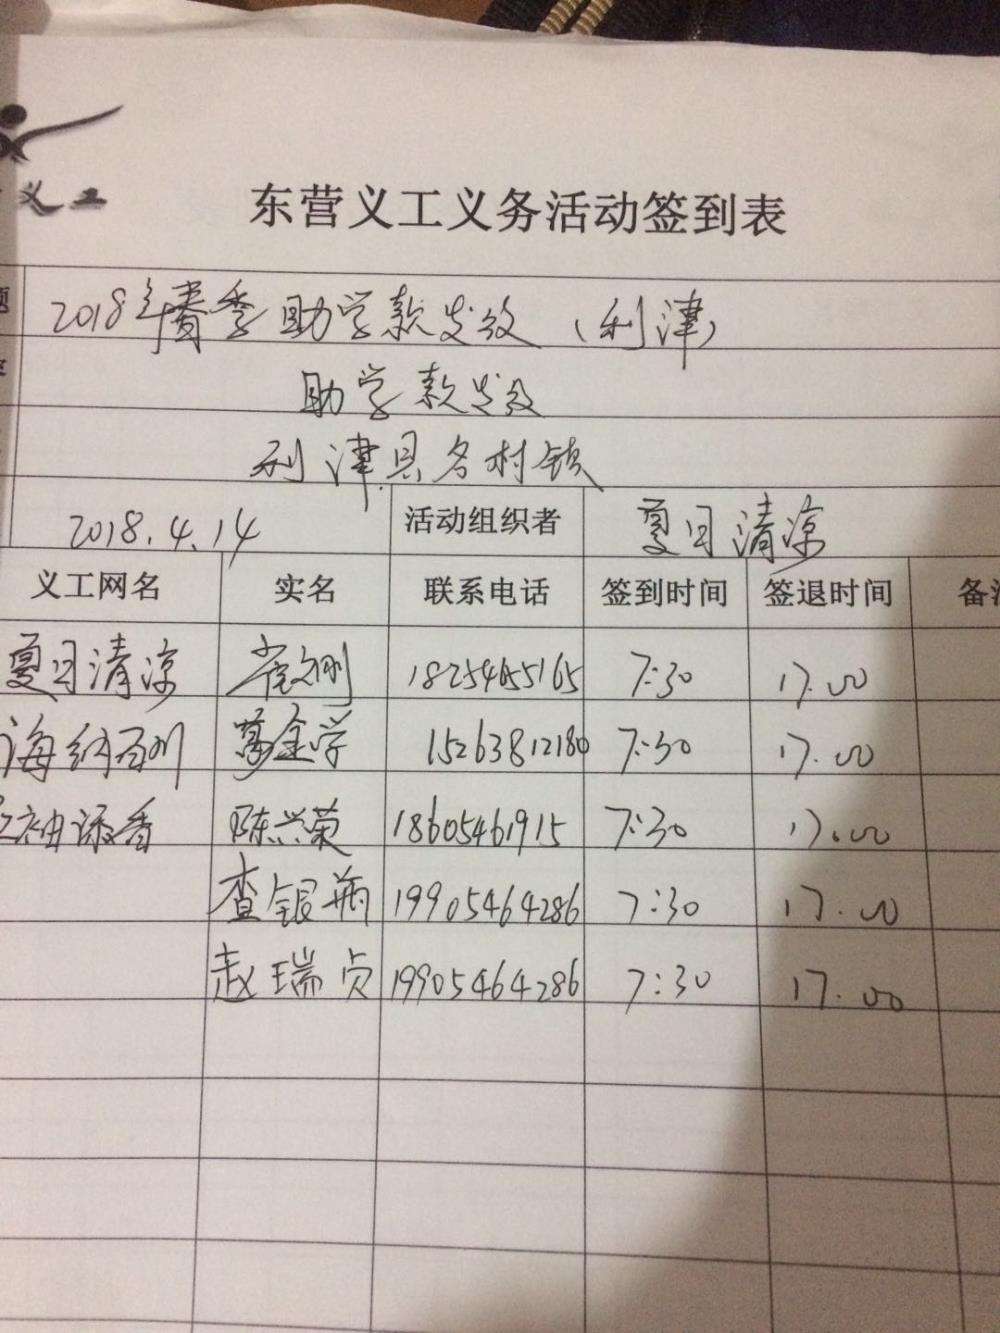 义工
东营义工义务活动签到表
题 2018年春季助学款发放（利津）
助学款发放
利津县各村镇
2018.4.14 活动组织者 夏日清凉
义工网名 实名 联系电话 签到时间 签退时间 备注
夏日清凉 18254655165 7:30 17.00
海纳百川 金学 15263812180 7:30 17.00
袖添香 陈兴荣 18605461915 7:30 17.00
查银瓶 19905464286 7:30 17.00
赵瑞贞 19905464286 7:30 17.00